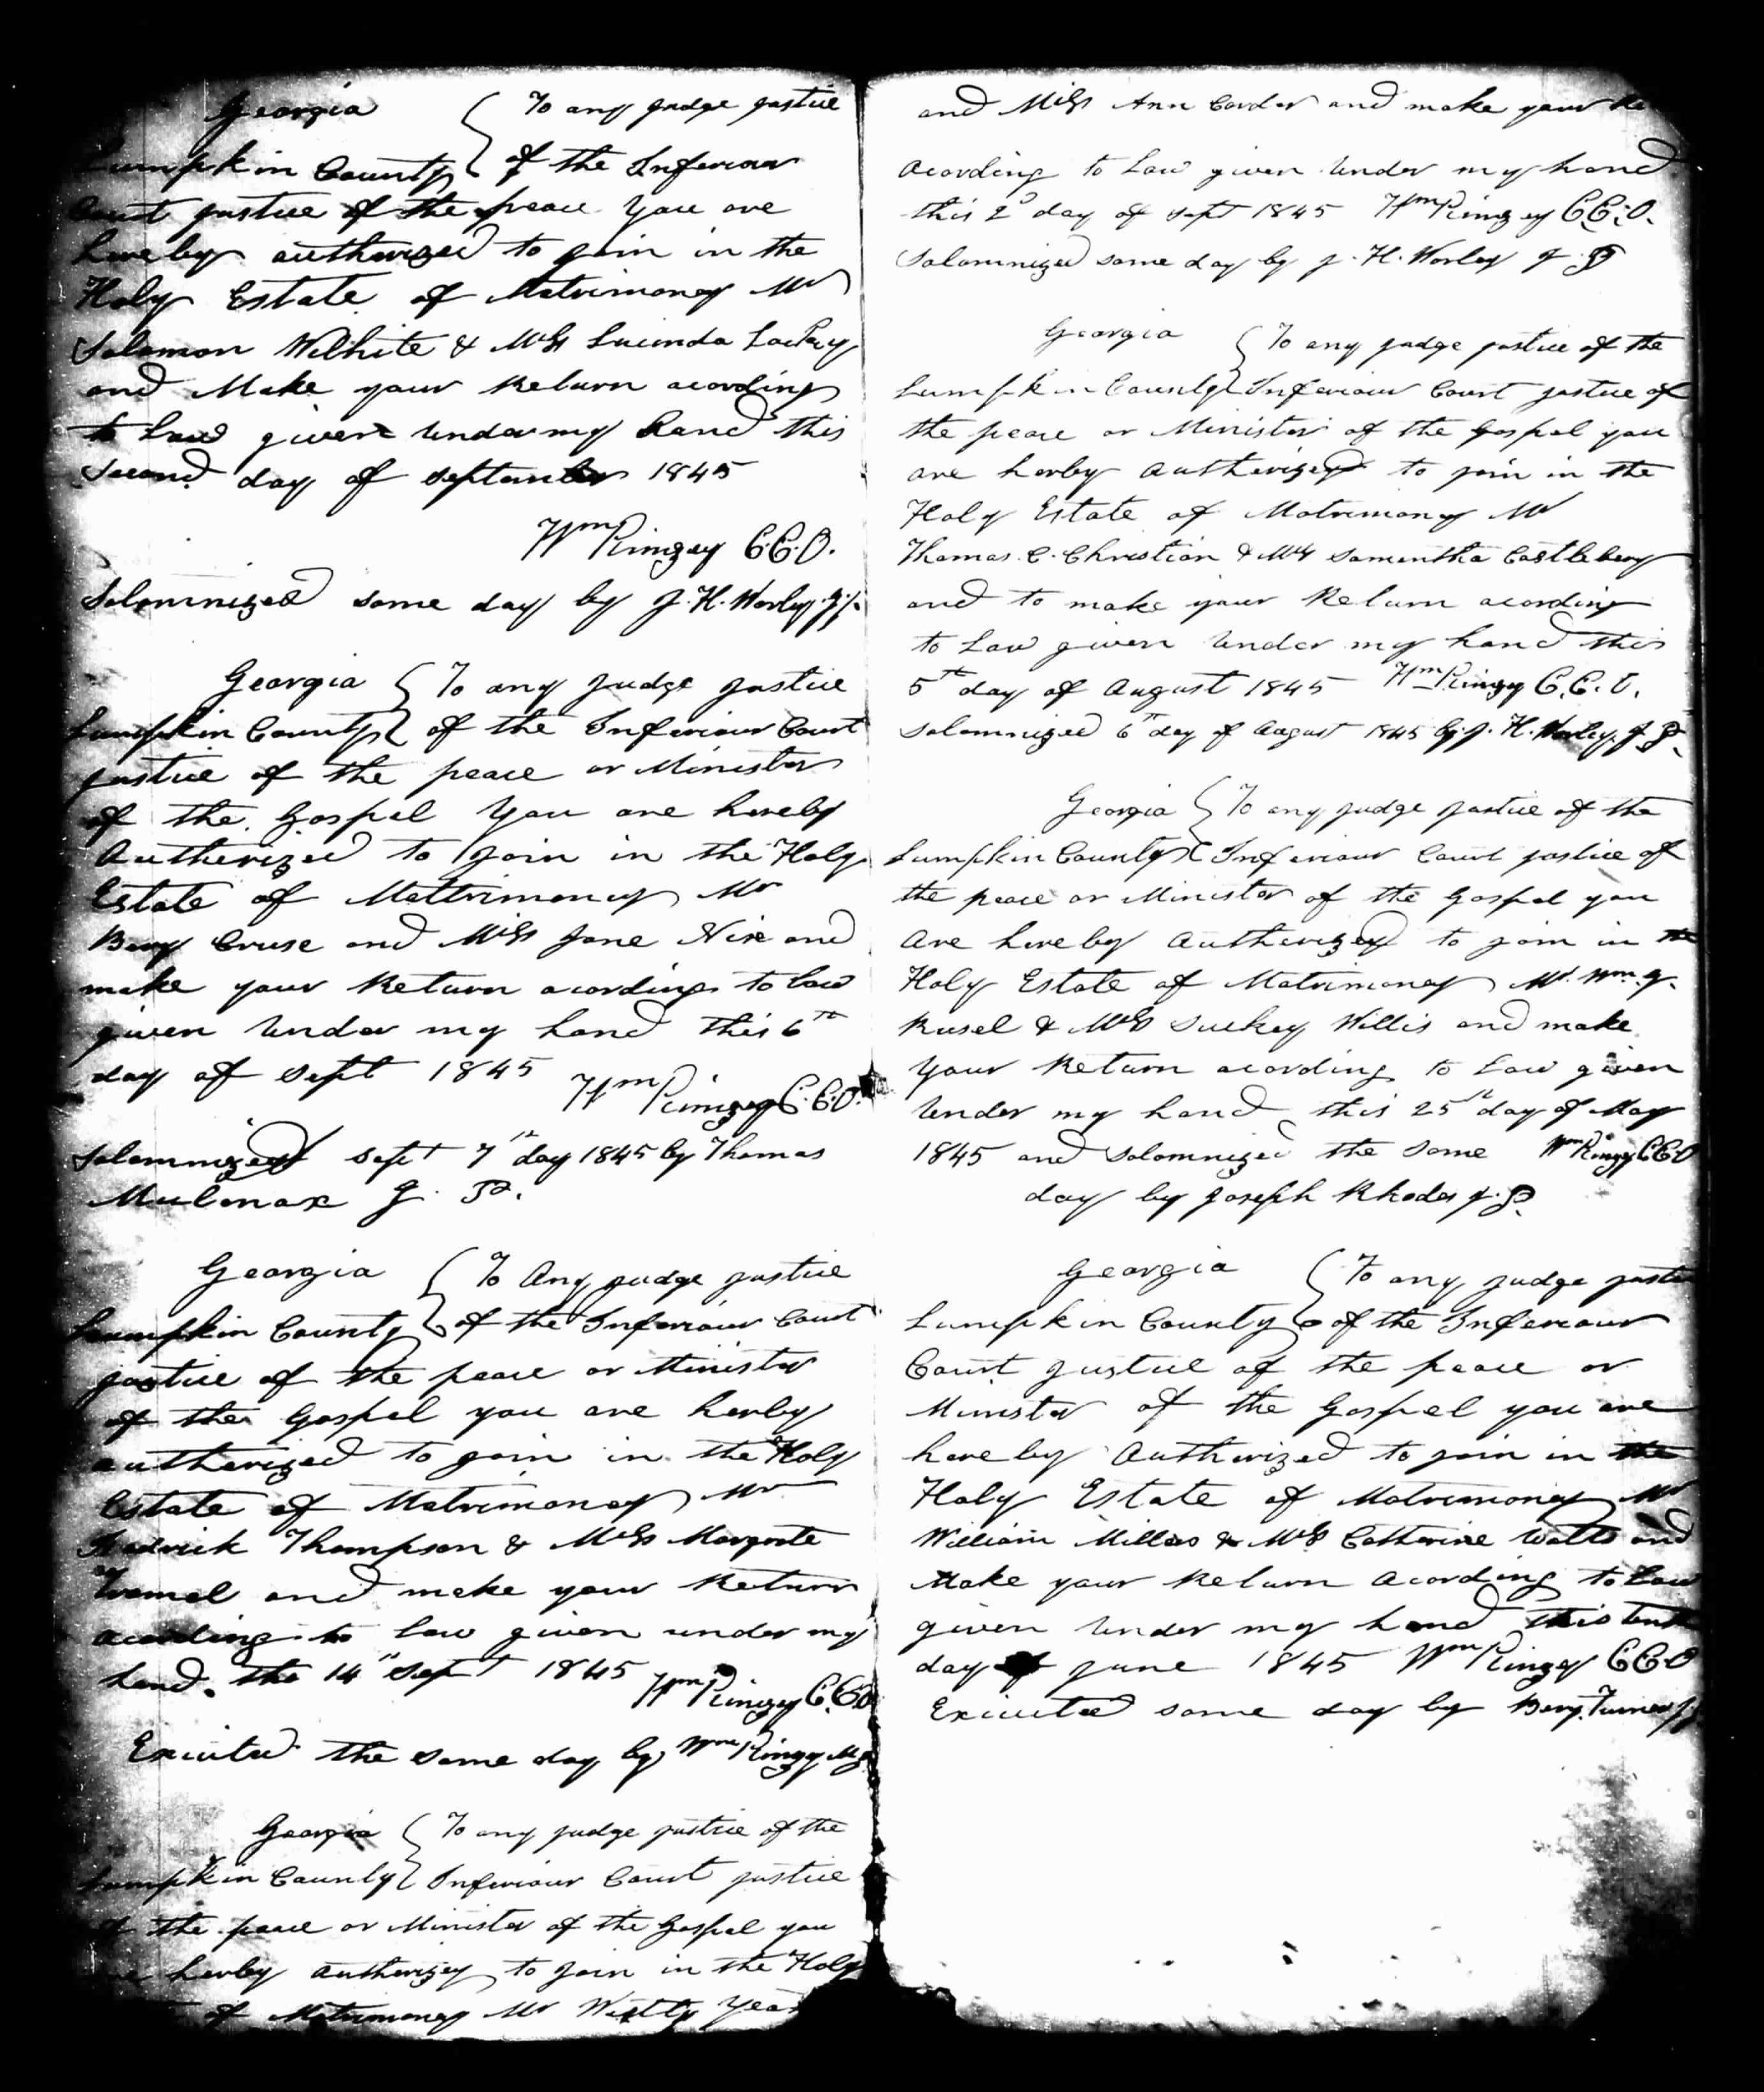 Georgia To any judge justice
Lumpkin County of the Inferiour
Court justice of the peace you are
hereby authorized to join in the
Holy Estate of Matrimoney Mr
Solomon Wilhite & Miss Lucinda
and Make your Return acording
to Law given under my hand this
Second day of september 1845
Wm Rimzey C.C.O.
Solomnized same day by J. H. Worley J.P.
Georgia To any judge justice
Lumpkin County of the Inferiour Court
justice of the peace or Minister
of the Gospel you are hereby
Autherized to join in the Holy
Estate of Mattrimoney Mr
Bery Cruse and Miss Jane Nix and
make your Return acording to law
given under my hand this 6th
day of Sept 1845
Wm Rimzey C.C.O.
Solomnized Sept 7th day 1845 by Thomas
Mulonax J. P.
Georgia To Any judge justice
Lumpkin County of the Inferiour Court
justice of the peace or Minister
of the Gospel you are herby
autherized to join in the Holy
Estate of Matrimoney Mr
Thompson & Miss Margrate
and make your Return
acording to law given under my
hand the 14th Sept 1845
Wm Rimzey C.C.O.
Exicuted the same day by Wm Rimzy
Georgia To any judge justice of the
Lumpkin County Inferiour Court justice
of the peace or Minister of the Gospel you
are herby autherizey to join in the Holy
of Matrimoney Mr
and Miss Ann Carder and make your
acording to Law given under my hand
this 2d day of Sept 1845 Wm Rimzey C.C.O.
Solomnized same day by J. H. Worley J P
Georgia To any judge justice of the
Lumpkin County Inferiour Court justice of
the peace or Minister of the Gospel you
are herby autherized to join in the
Holy Estate of Matrimony Mr
Thomas C. Christian & Miss Samantha Castlebery
and to make your Return acording
to Law given under my hand this
5th day of August 1845 Wm Rimzy C.C.O.
Solomnized 6th day of August 1845 by J. H. Worley J P.
Georgia To any judge justice of the
Lumpkin County Inferiour Court justice of
the peace or Minister of the Gospel you
Are hereby Autherized to join in the
Holy Estate of Matrimoney Mr. Wm. J.
Rusel & Miss Suckey Willis and make
your Return acording to Law given
under my hand this 25th day of May
1845 and Solomnized the same Wm Rimzy C.C.O
day by Joseph Rhodes J.P.
Georgia To any judge justice
Lumpkin County of the Inferiour
Court justice of the peace or
Minister of the Gospel you are
hereby Autherized to join in the
Holy Estate of Matrimoney Mr
William Millers & Miss Catherine Watts and
Make your Return Acording to Law
given under my hand this tenth
day of June 1845 Wm Rimzey C.C.O
Exicuted same day by Bery Turner